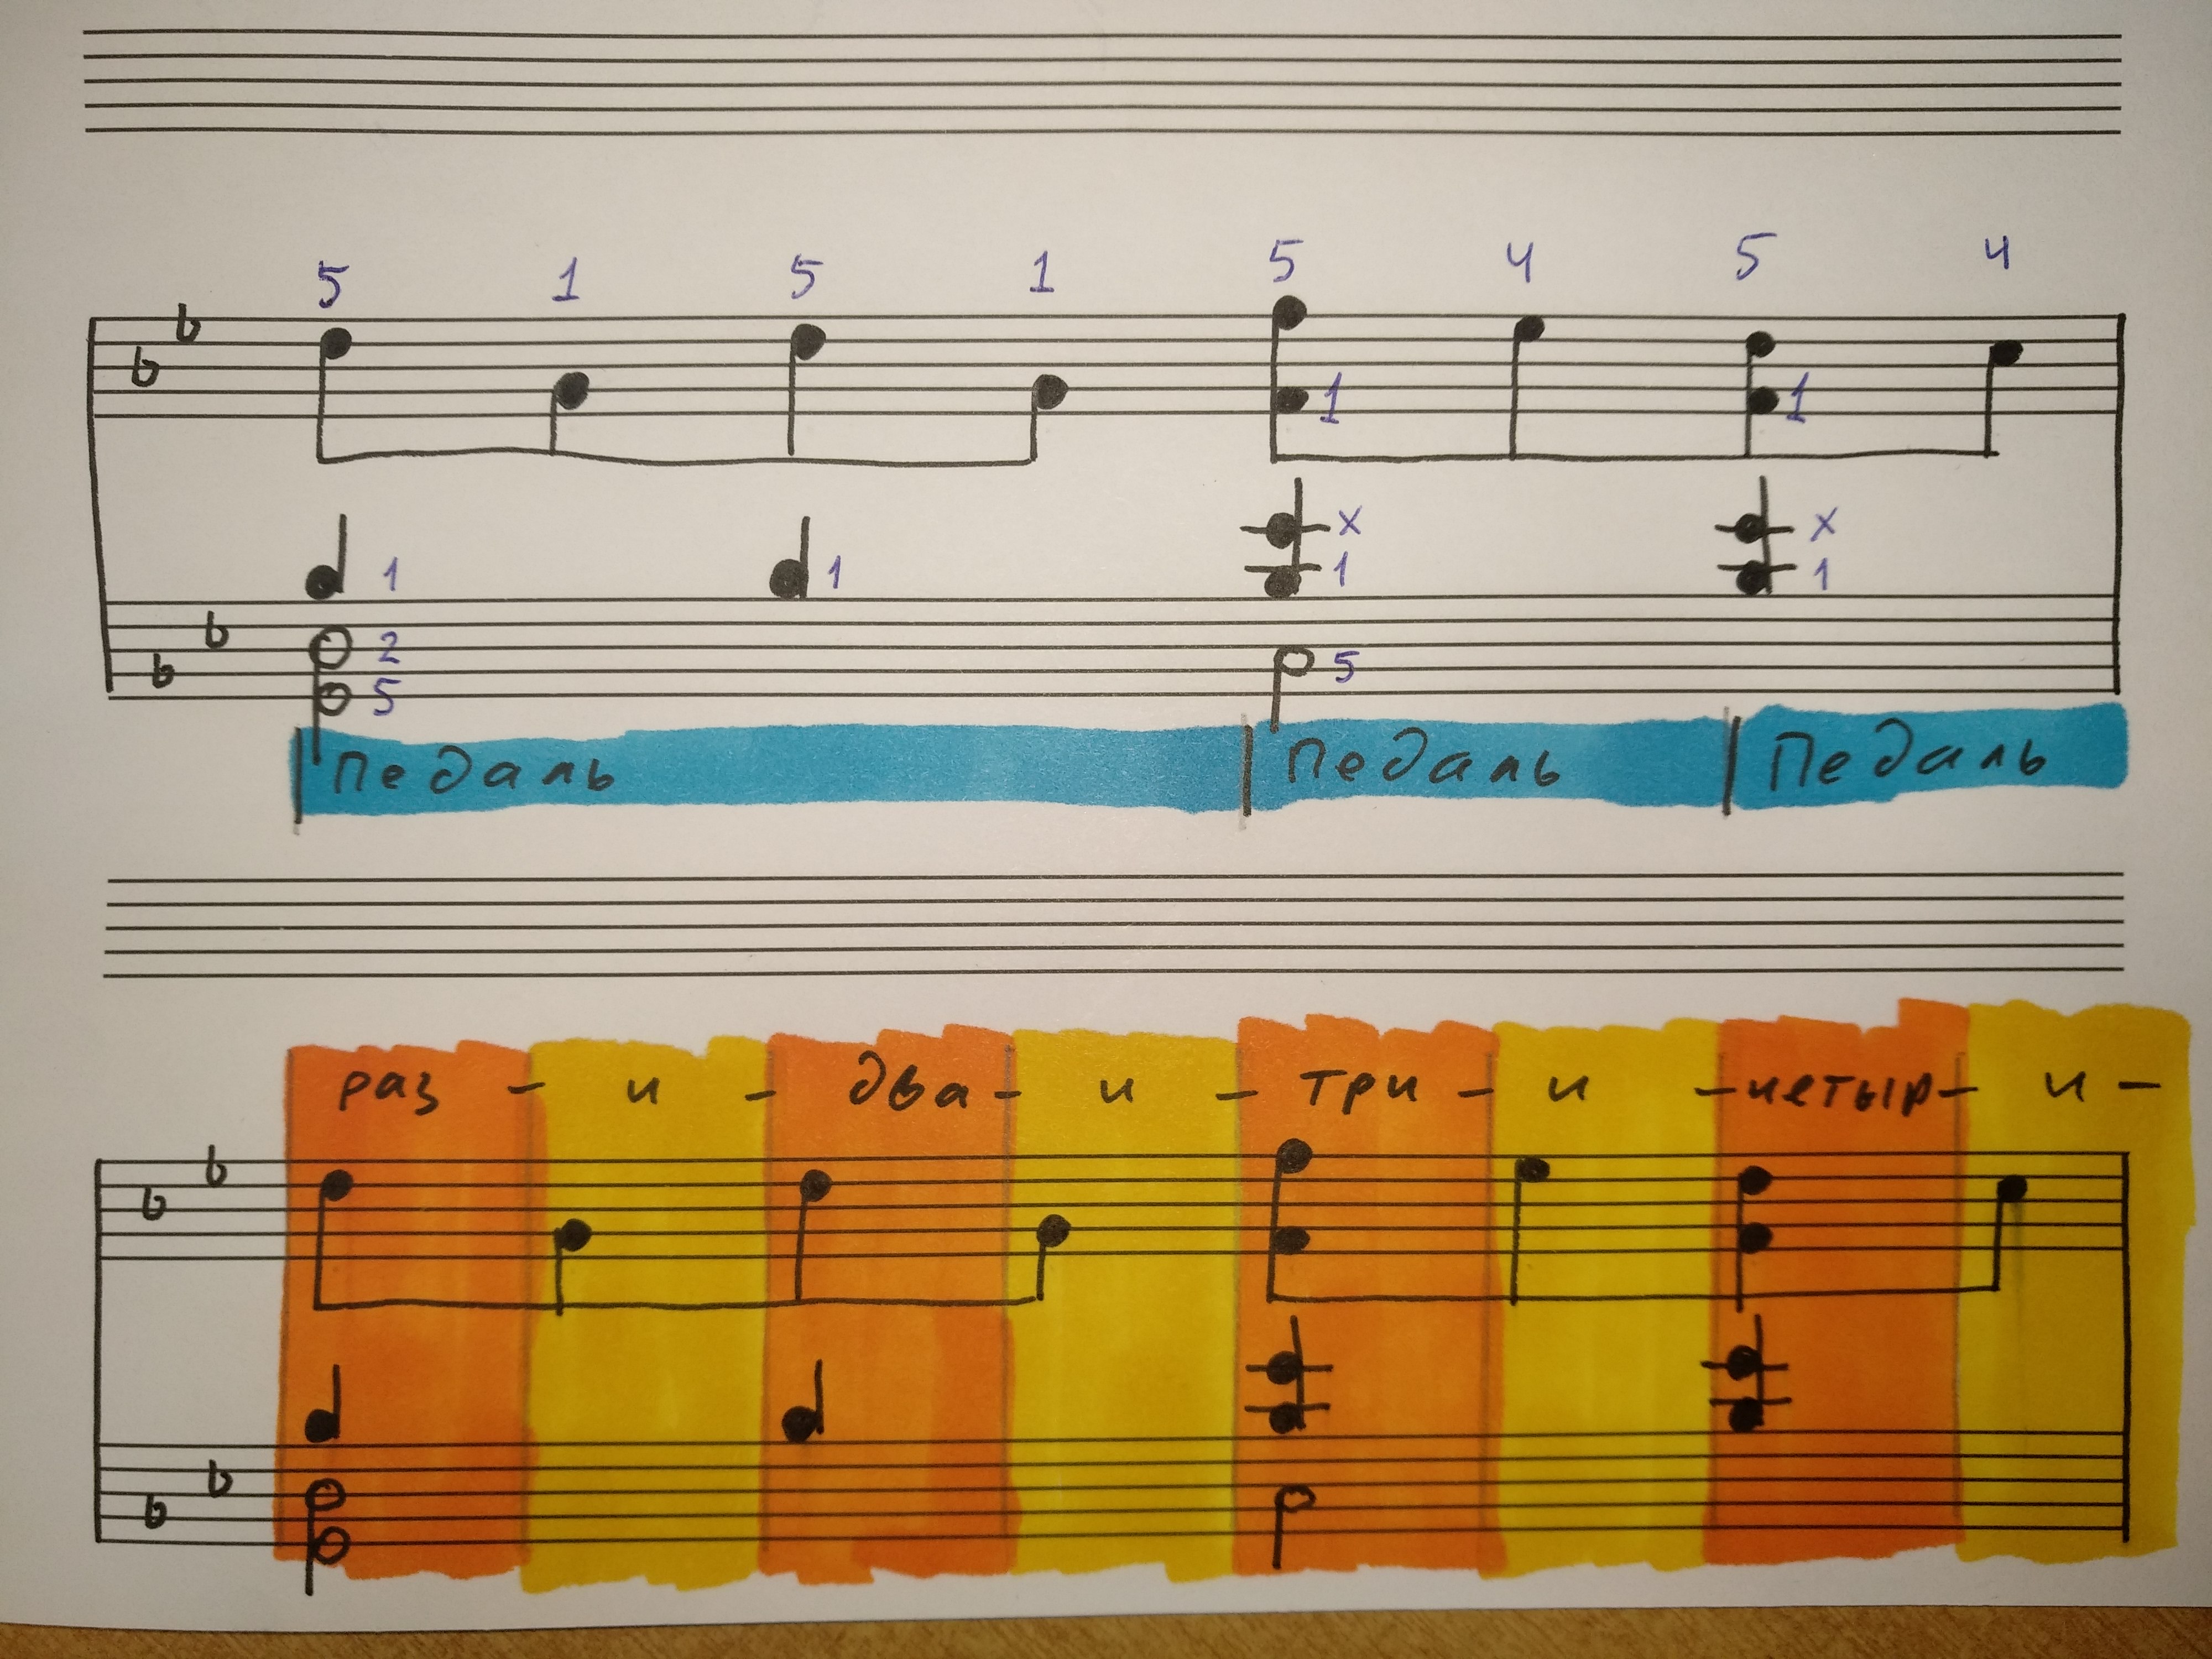 5 1 5 1 5 4 5 4
1 1
x x
1 1 1 1
2
5
5
Педаль Педаль Педаль
раз - и - два - и - три - и - четыр - и -